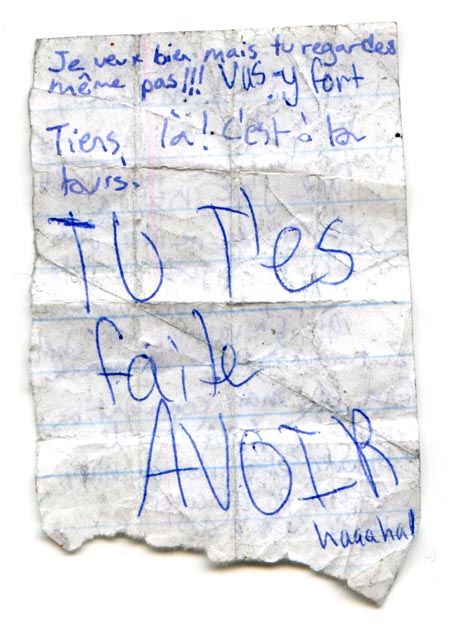 Je veux bien mais tu regardes
même pas!!! Vas-y fort
Tiens, là! c'est à ton
tours.
TU T'es
faite
AVOIR
haaaha!